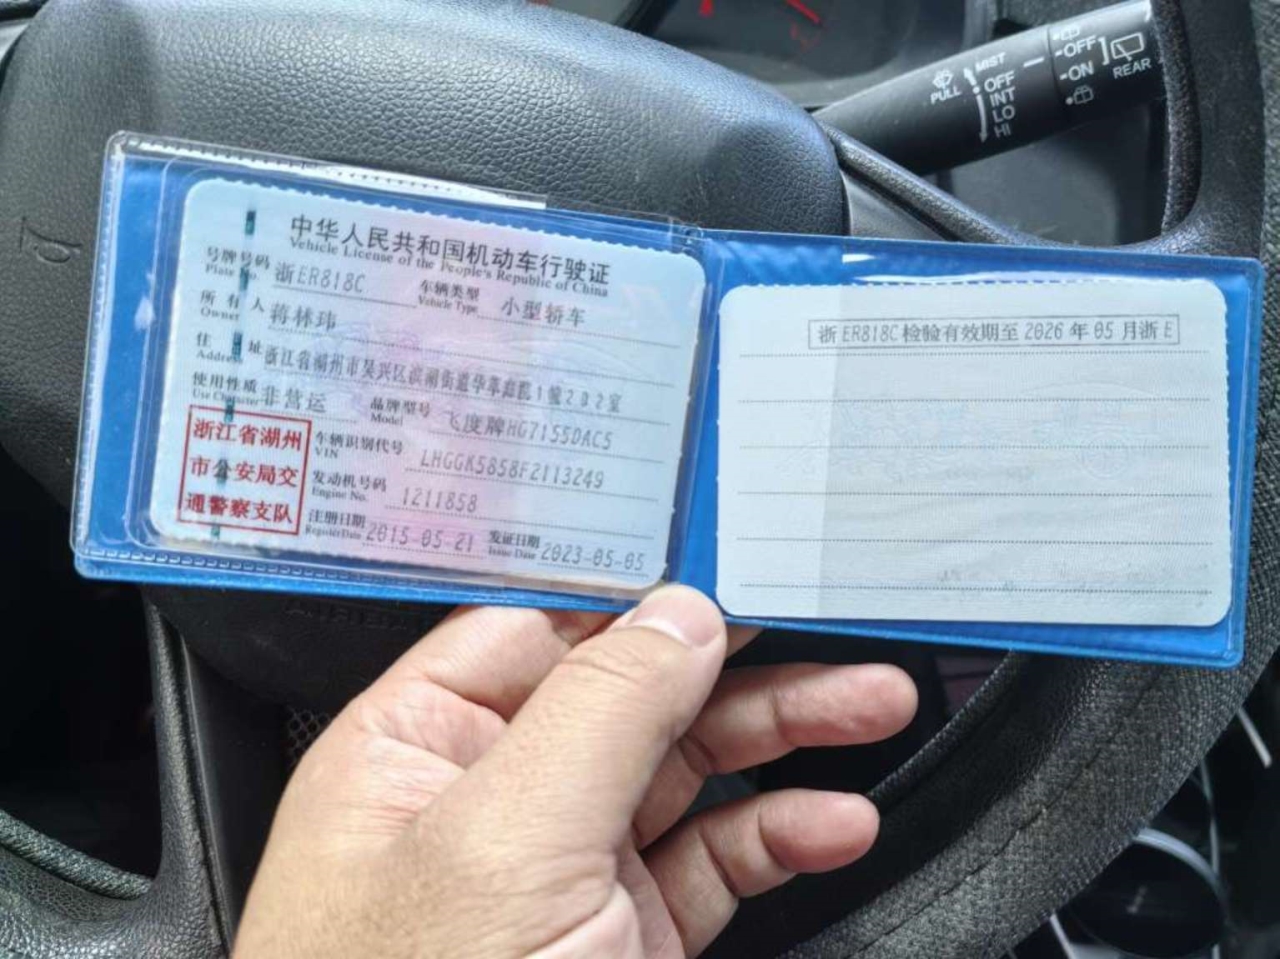 中华人民共和国机动车行驶证
Vehicle License of the People's Republic of China
号牌号码 浙ER818C 车辆类型 小型轿车
Plate No. Vehicle Type
所有人 蒋林玮
Owner
住址 浙江省湖州市吴兴区滨湖街道华萃庭院1幢202室
Address
使用性质 非营运 品牌型号 飞度牌HG7155DAC5
Use Character Model
浙江省湖州
市公安局交
通警察支队
车辆识别代号 LHGGK5858F2113249
VIN
发动机号码 1211858
Engine No.
注册日期 2015-05-21 发证日期 2023-05-05
Register Date Issue Date
浙ER818C检验有效期至2026年05月浙E
MIST
OFF
INT
LO
HI
PULL
OFF
ON
REAR